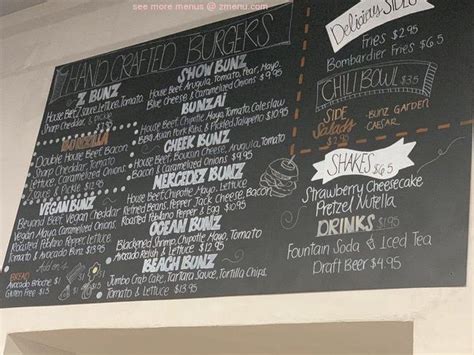 see more menus @ zmenu.com
HAND CRAFTED BURGERS
Z BUNZ
House Beef, Z Sauce, Lettuce, Tomato
Sharp Cheddar, & Pickle
Double House Beef, Bacon
Sharp Cheddar, Tomato
Lettuce, Caramelized Onions
& Pickle $12.95
VEGAN BUNZ
Beyond Beef, Vegan Cheddar
Vegan Mayo, Caramelized Onions
Roasted Poblano Pepper, Lettuce
Tomato & Avocado Bunz $13.95
Add on
BREAD
Avocado Brioche $1
Gluten Free $1.5
SHOW BUNZ
House Beef, Arugula, Tomato, Pear, Mayo
Blue Cheese & Caramelized Onions $9.95
BUNZAI
House Beef, Chipotle Mayo, Tomato, Coleslaw
BBQ, Asian Pork Ribs, & Pickled Jalapeño $10.95
CHEEK BUNZ
House Beef, Boursin Cheese, Arugula
Mayo, Bacon & Caramelized Onions $9.95
MERCEDEZ BUNZ
House Beef, Chipotle Mayo, Tomato
Refried Beans, Pepper Jack Cheese, Bacon
Roasted Poblano Pepper & Egg
OCEAN BUNZ
Blackened Shrimp, Chipotle Mayo, Tomato
Avocado Relish & Lettuce
BEACH BUNZ
Jumbo Crab Cake, Tartara Sauce, Tortilla Chips
Tomato & Lettuce $13.95
Delicious SIDES
Fries $2.95
Bombardier Fries $6.5
CHILI BOWL $3.5
SIDE
Salads
-BUNZ GARDEN
CAESAR
SHAKES $6.5
Strawberry Cheesecake
Pretzel Nutella
DRINKS $1.95
Fountain Soda & Iced Tea
Draft Beer $4.95